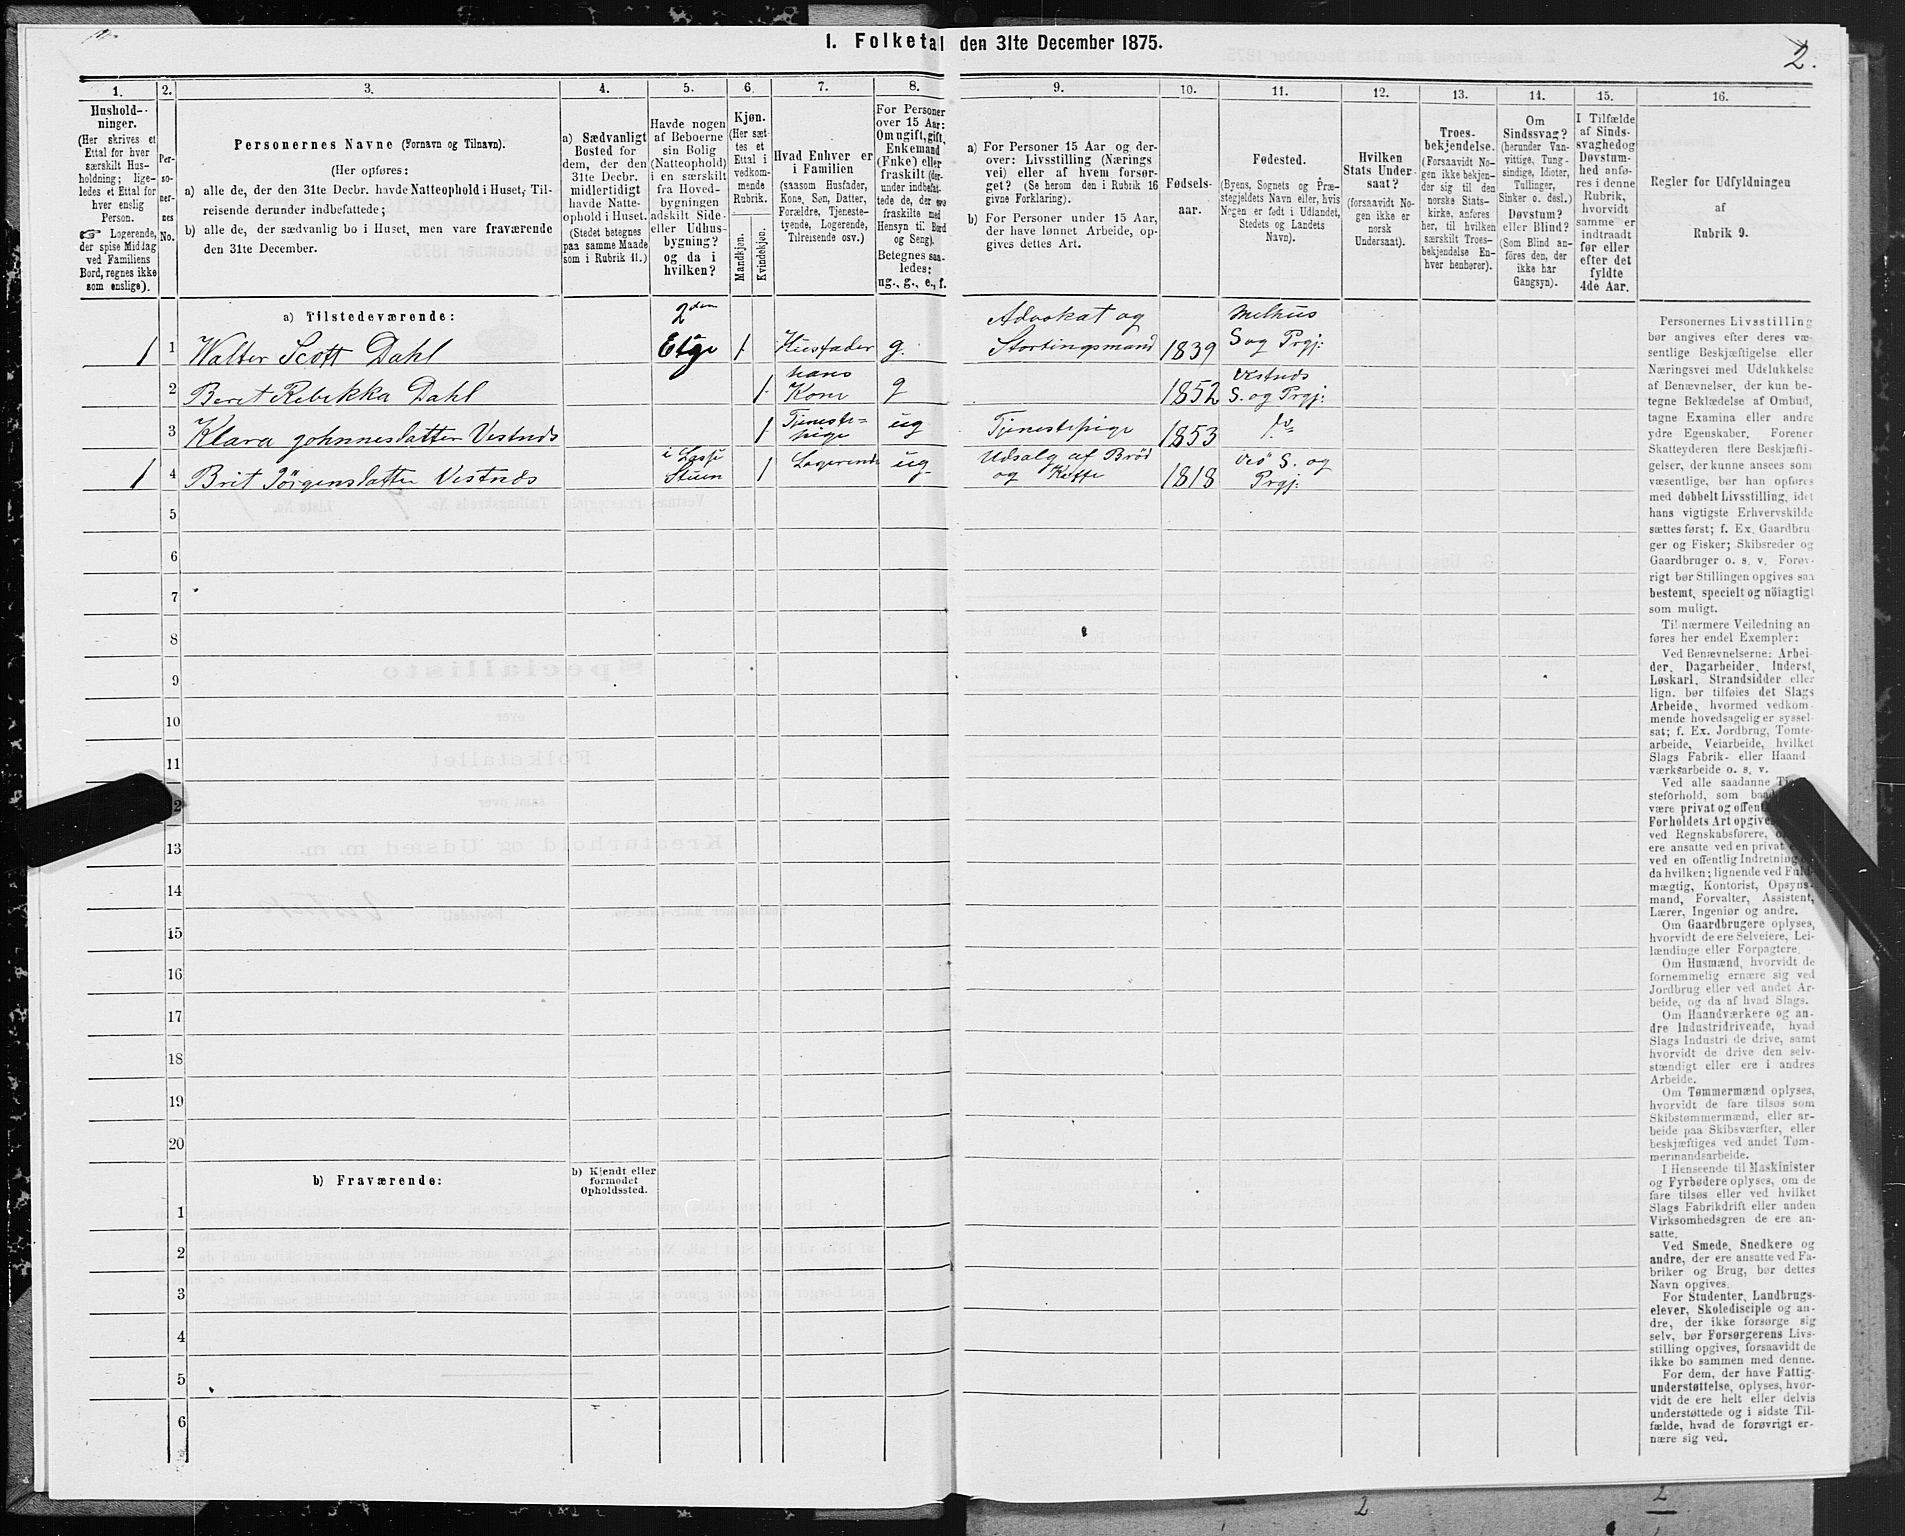 I. Folketal den 31te December 1875.
2.
1.
Hushold-
ninger.
(Her skrives et
Ettal for hver
særskilt Hus-
holdning; lige-
ledes et Ettal for
hver enslig
Person.
Logerende,
der spise Middag
ved Familiens
Bord, regnes ikke
som enslige).
2.
Per-
so-
ner-
nes
No.
3.
Personernes Navne (Fornavn og Tilnavn).
(Her opføres:
a) alle de, der den 31te Decbr. havde Natteophold i Huset, Til-
reisende derunder indbefattede;
b) alle de, der sædvanlig bo i Huset, men vare fraværende
den 31te December.
4.
a) Sædvanligt
Bosted for
dem, der den
31te Decbr.
midlertidigt
havde Natte-
ophold i Huset.
(Stedet betegnes
paa samme Maade
som i Rubrik 11.)
5.
Havde nogen
af Beboerne
sin Bolig
(Natteophold)
i en særskilt
fra Hoved-
bygningen
adskilt Side-
eller Udhus-
bygning?
og da i
hvilken?
6.
Kjøn.
(Her sæt-
tes et
Ettal i
vedkom-
mende
Rubrik.
Mandkjøn.
Kvindekjøn.
7.
Hvad Enhver er
i Familien
(saasom Husfader,
Kone, Søn, Datter,
Forældre, Tjeneste-
tyende, Logerende,
Tilreisende osv.)
8.
For Personer
over 15 Aar:
Om ugift, gift,
Enkemand
(Enke) eller
fraskilt (der-
under indbefat-
tede de, der ere
fraskilte med
Hensyn til Bord
og Seng).
Betegnes saa-
ledes:
ug., g., e., f.
9.
a) For Personer 15 Aar og der-
over: Livsstilling (Nærings
vei) eller af hvem forsør-
get? (Se herom den i Rubrik 16
givne Forklaring).
b) For Personer under 15 Aar,
der have lønnet Arbeide, op-
gives dettes Art.
10.
Fødsels-
aar.
11.
Fødested.
(Byens, Sognets og Præ-
stegjeldets Navn eller, hvis
Nogen er født i Udlandet,
Stedets og Landets
Navn).
12.
Hvilken
Stats Under-
saat?
(forsaavidt No-
gen ikke er
norsk
Undersaat).
13.
Troes-
bekjendelse.
(Forsaavidt No-
gen ikke bekjen-
der sig til den
norske Stats-
kirke, anføres
her, til hvilken
særskilt Troes-
bekjendelse En-
hver henhører).
14.
Om
Sindssvag?
(herunder Van-
vittige, Tung-
sindige, Idioter,
Tullinger,
Sinker o. desl.)
Døvstum?
eller Blind?
(Som Blind an-
føres den, der
ikke har
Gangsyn).
15.
I Tilfælde
af Sinds-
svaghed og
Døvstum-
hed anfø-
res i denne
Rubrik,
hvorvidt
samme er
indtraadt
før eller
efter det
fyldte
4de Aar.
16.
Regler for Udfyldningen
af
Rubrik 9.
a) Tilstedeværende:
1 1 Walter Scott Dahl 2den Etge 1 Husfader g. Advokat og Stortingsmand 1839 Melhus S og Prgj:
2 Beret Rebekka Dahl 1 hans Kone g 1852 Vestnds S. og Prgj:
3 Klara Johnnesdatter Vestnds 1 Tjeneste-pige ug Tjenestepige 1853 do
1 4 Brit Jörgensdatter Vestnds i Stuen 1 Logerende ug Udsalg af Bröd og Kaffe 1818 Veö S. og Prgj:
5
6
7
8
9
10
11
2
13
14
15
16
17
18
19
20
b) Fraværende:
b) Kjendt eller
formodet
Opholdssted.
1
2
3
4
5
6
Personernes Livsstilling
bør angives efter deres væ-
sentlige Beskjæftigelse eller
Næringsvei med Udelukkelse
af Benævnelser, der kun be-
tegne Beklædelse af Ombud,
tagne Examina eller andre
ydre Egenskaber. Forener
Skatteyderen flere Beskjæfti-
gelser, der kunne ansees som
væsentlige, bør han opføres
med dobbelt Livsstilling, idet
hans vigtigste Erhvervskilde
sættes først; f. Ex. Gaardbru
ger og Fisker; Skibsreder og
Gaardbruger o. s. v. Forøv-
rigt bør Stillingen opgives saa
bestemt, specielt og nöiagtigt
som muligt.
Til nærmere Veiledning an
føres her endel Exempler:
Ved Benævnelserne: Arbei-
der, Dagarbeider, Inderst,
Løskarl, Strandsidder eller
lign. bør tilføies det Slags
Arbeide, hvormed vedkom-
mende hovedsagelig er syssel-
sat; f. Ex. Jordbrug, Tomte-
arbeide, Veiarbeide, hvilket
Slags Fabrik- eller Haand
værksarbeide o. s. v.
Ved alle saadanne
steforhold, som
være privat og
Forholdets Art
ved Regnskabsførere,
ere ansatte ved en privat
ved en offentlig Indretning
da hvilken; lignende ved Fuld-
mægtig, Kontorist, Opsyns-
mand, Forvalter, Assistent,
Lærer, Ingeniør og andre.
Om Gaardbrugere oplyses,
hvorvidt de ere Selveiere, Lei-
lændinge eller Forpagtere.
Om Husmænd, hvorvidt de
fornemmelig ernære sig ved
Jordbrug eller ved andet Ar-
beide, og da af hvad Slags.
Om Haandværkere og an-
dre Industridrivende, hvad
Slags Industri de drive, samt
hvorvidt de drive den selv-
stændigt eller ere i andres
Arbeide.
Om Tømmermænd oplyses,
hvorvidt de fare tilsøs som
Skibstømmermænd, eller ar-
beide paa Skibsværfter, eller
beskjæftiges ved andet Tøm-
mermandsarbeide.
I Henseende til Maskinister
og Fyrbødere oplyses, om de
fare tilsøs eller ved hvilket
Slags Fabrikdrift eller anden
Virksomhedsgren de ere an-
satte.
Ved Smede, Snedkere og
andre, der ere ansatte ved Fa-
briker og Brug, bør dettes
Navn opgives.
For Studenter, Landbrugs-
elever, Skoledisciple og an-
dre, der ikke forsørge sig
selv, bør Forsørgerens Livs-
stilling opgives, forsaavidt de
ikke bo sammen med denne.
For dem, der have Fattig-
understøttelse, oplyses, hvor-
vidt de ere helt eller delvis
understøttede og i sidste Til-
fælde, hvad de forøvrigt er-
nære sig ved.
2
2